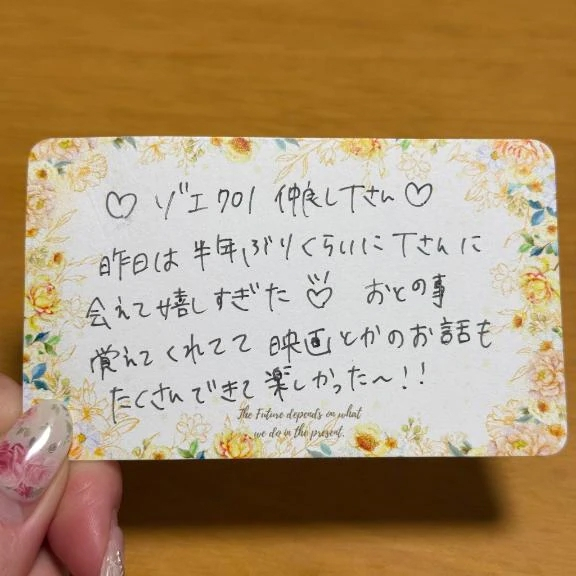 ♡ ゾエ701 仲良しTさん ♡
昨日は 半年ぶりくらいに Tさんに
会えて嬉しすぎた ♡ おとの事
覚えてくれてて 映画とかのお話も
たくさんできて楽しかった〜!!
The Future depends on what
we do in the present.